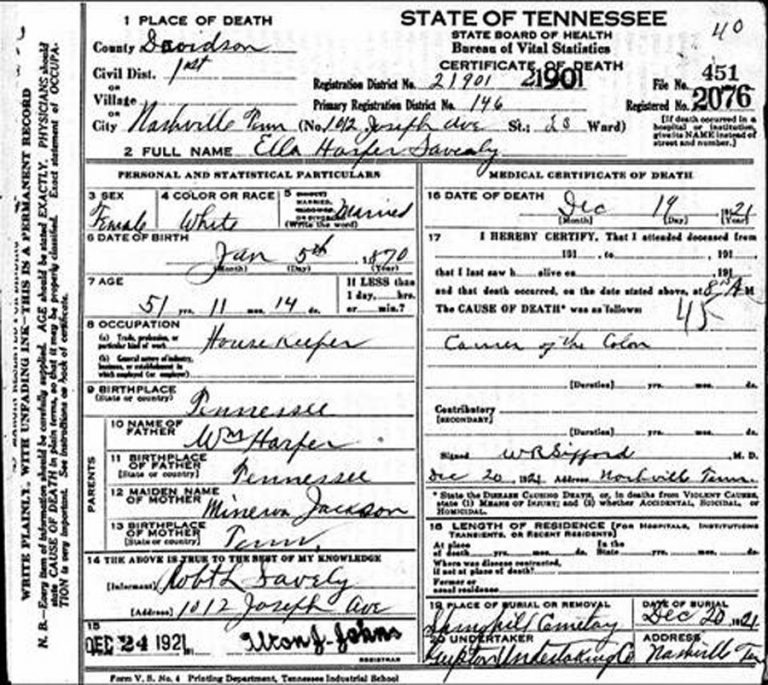 STATE OF TENNESSEE
STATE BOARD OF HEALTH
Bureau of Vital Statistics
CERTIFICATE OF DEATH
40
1 PLACE OF DEATH
County Davidson
Civil Dist. 1st
OR
Village
OR
City Nashville Tenn (No. 1012 Joseph Ave St.; Ward)
Registration District No. 21901 21901
Primary Registration District No. 146
File No. 451
Registered No. 2076
[If death occurred in a hospital or institution, give its NAME instead of street and number.]
2 FULL NAME Ella Harper Savely
PERSONAL AND STATISTICAL PARTICULARS
3 SEX
Female
4 COLOR OR RACE
White
5 Married
(Write the word)
6 DATE OF BIRTH
Jan 5th 1870
(Month) (Day) (Year)
7 AGE
51 yrs. 11 mos. 14 ds.
If LESS than
1 day,....hrs.
or......min.?
8 OCCUPATION
(a) Trade, profession, or
particular kind of work
House Keeper
(b) General nature of industry,
business, or establishment in
which employed (or employer)
9 BIRTHPLACE
(State or country)
Tennessee
PARENTS
10 NAME OF
FATHER
Wm Harper
11 BIRTHPLACE
OF FATHER
(State or country)
Tennessee
12 MAIDEN NAME
OF MOTHER
Minerva Jackson
13 BIRTHPLACE
OF MOTHER
(State or country)
Tenn.
14 THE ABOVE IS TRUE TO THE BEST OF MY KNOWLEDGE
(Informant) Robt L Savely
(Address) 1012 Joseph Ave
15
DEC 24 1921 Alton J. Johns
REGISTRAR
MEDICAL CERTIFICATE OF DEATH
16 DATE OF DEATH
Dec 19 1921
(Month) (Day) (Year)
17 I HEREBY CERTIFY, That I attended deceased from
191 , to 191 ,
that I last saw h alive on 191
and that death occurred, on the date stated above, at 8 A M
The CAUSE OF DEATH* was as follows:
45
Cancer of the Colon
(Duration) yrs. mos. ds.
Contributory
(SECONDARY)
(Duration) yrs. mos. ds.
Signed W R Sifford M. D.
Dec 20, 1921 Address Nashville Tenn.
* State the DISEASE CAUSING DEATH, or, in deaths from VIOLENT CAUSES,
state (1) MEANS OF INJURY; and (2) whether ACCIDENTAL, SUICIDAL, or
HOMICIDAL.
18 LENGTH OF RESIDENCE (FOR HOSPITALS, INSTITUTIONS
TRANSIENTS, OR RECENT RESIDENTS)
At place
of death yrs. mos. ds.
In the
State yrs. mos. ds.
Where was disease contracted,
if not at place of death?
Former or
usual residence
19 PLACE OF BURIAL OR REMOVAL
Springhill Cemetery
DATE OF BURIAL
Dec 20, 1921
20 UNDERTAKER
Gupton Undertaking Co
ADDRESS
Nashville Tenn
Form V. S. No. 4 Printing Department, Tennessee Industrial School
WRITE PLAINLY, WITH UNFADING INK—THIS IS A PERMANENT RECORD
N. B.—Every item of information should be carefully supplied. AGE should be stated EXACTLY. PHYSICIANS should
state CAUSE OF DEATH in plain terms, so that it may be properly classified. Exact statement of OCCUPA-
TION is very important. See instructions on back of certificate.